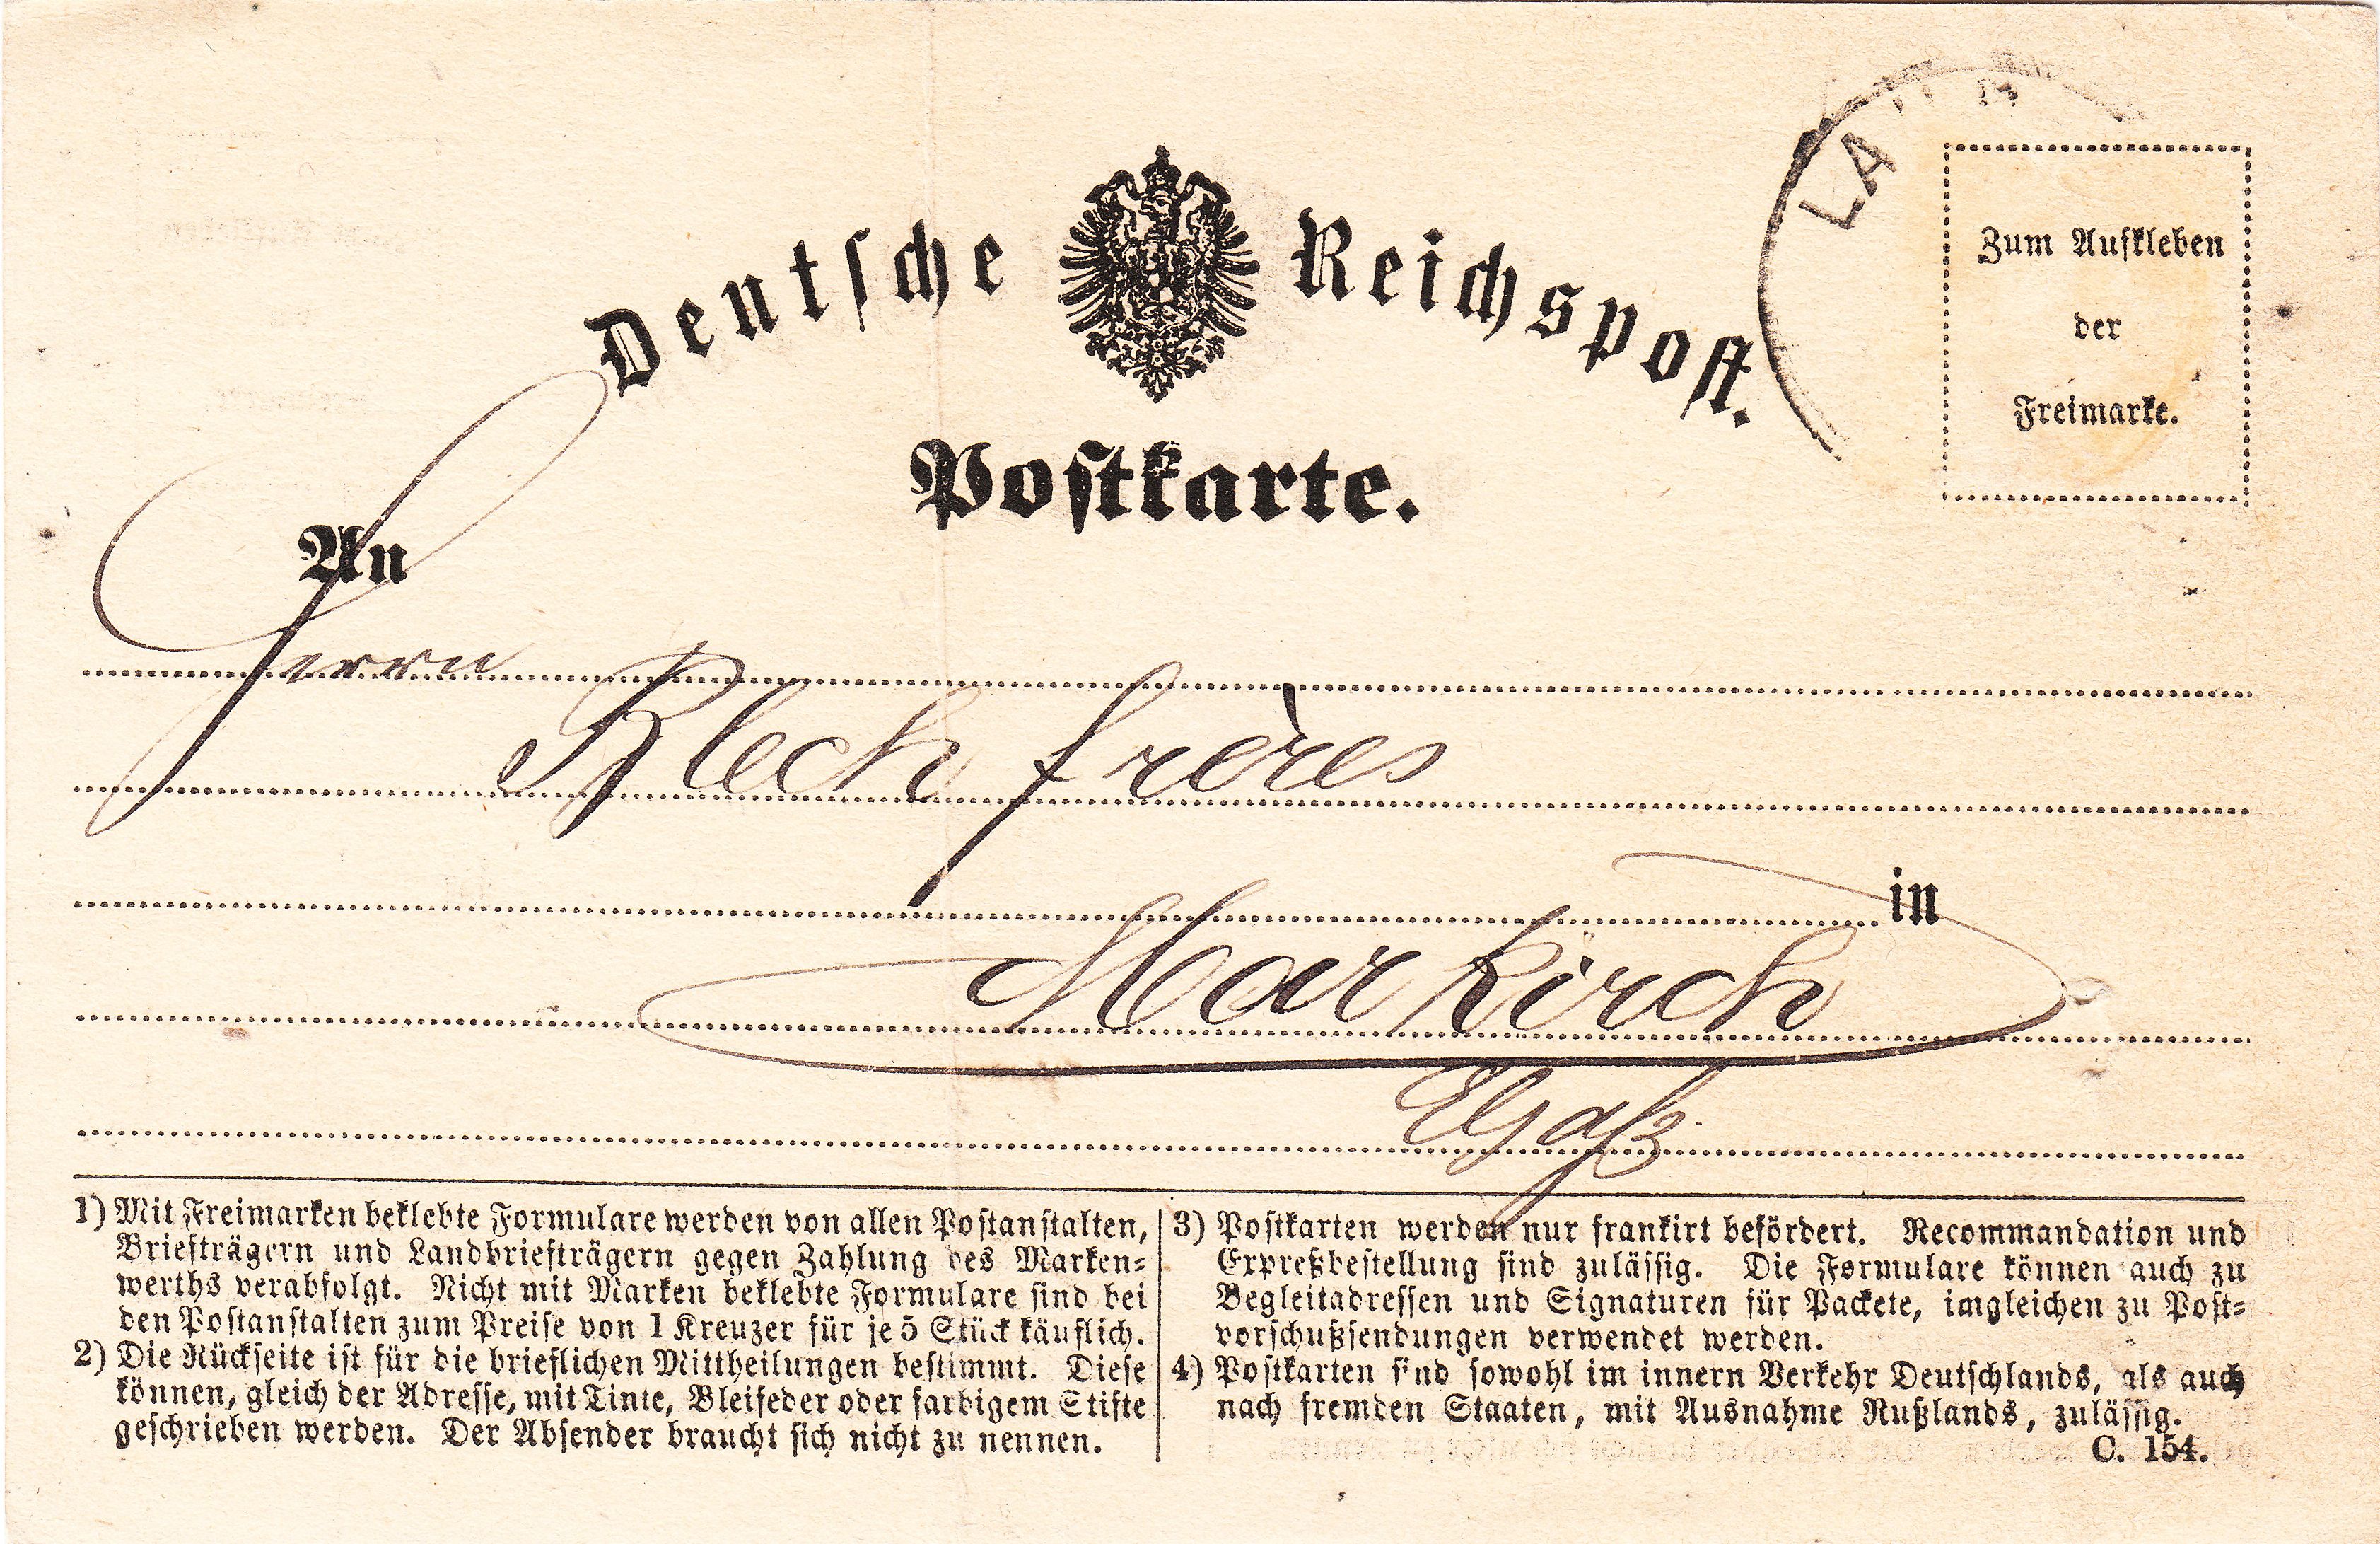 LA
Deutsche Reichspost.
Zum Aufkleben
der
Freimarke.
Postkarte.
An
Herrn
Blech frères
in
Markirch
Elsaß
1) Mit Freimarken beklebte Formulare werden von allen Postanstalten,
Briefträgern und Landbriefträgern gegen Zahlung des Marken=
werths verabfolgt. Nicht mit Marken beklebte Formulare sind bei
den Postanstalten zum Preise von 1 Kreuzer für je 5 Stück käuflich.
2) Die Rückseite ist für die brieflichen Mittheilungen bestimmt. Diese
können, gleich der Adresse, mit Tinte, Bleifeder oder farbigem Stifte
geschrieben werden. Der Absender braucht sich nicht zu nennen.
3) Postkarten werden nur frankirt befördert. Recommandation und
Expreßbestellung sind zulässig. Die Formulare können auch zu
Begleitadressen und Signaturen für Packete, imgleichen zu Post=
vorschußsendungen verwendet werden.
4) Postkarten sind sowohl im innern Verkehr Deutschlands, als auch
nach fremden Staaten, mit Ausnahme Rußlands, zulässig.
C. 154.